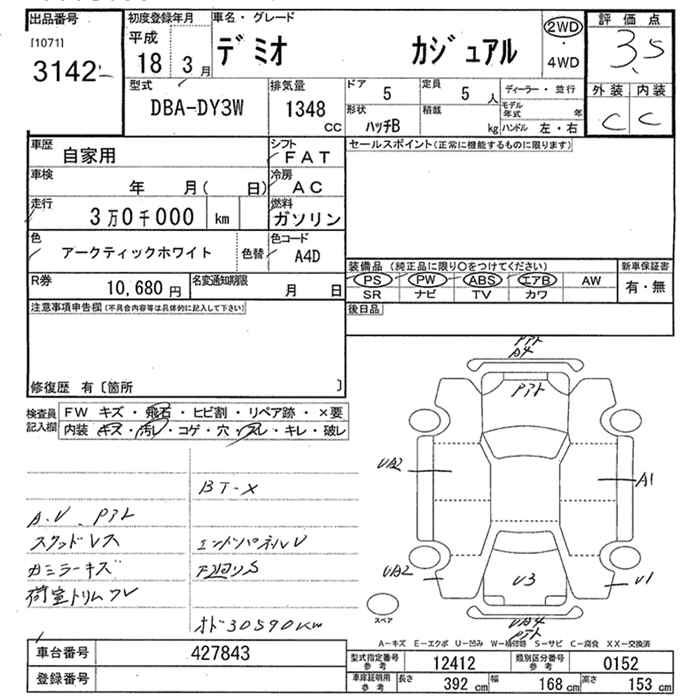 出品番号
[1071]
3142
初度登録年月
平成
18 3 月
車名・グレード
デミオ カジュアル
2WD
・
4WD
評価点
3.5
外装 内装
C C
型式
DBA-DY3W
排気量
1348
CC
ドア 5
定員 5 人
形状
ハッチB
積載
kg
ディーラー・並行
モデル年式 年
ハンドル 左・右
車歴
自家用
シフト
FAT
車検
年 月( 日)
冷房
AC
走行
3万0千000 km
燃料
ガソリン
色
アークティックホワイト
色替
色コード
A4D
R券
10,680 円
名変通知期限
月 日
セールスポイント(正常に機能するものに限ります)
装備品(純正品に限り○をつけてください)
PS PW ABS エアB AW
SR ナビ TV カワ
新車保証書
有・無
注意事項申告欄(不具合内容等は具体的に記入して下さい)
後日品
修復歴 有〔箇所 〕
検査員記入欄
FW キズ・飛石・ヒビ割・リペア跡・×要
内装 キズ・汚レ・コゲ・穴・スレ・キレ・破レ
BT-X
A.V. アト
スクッドレス
エンドパネルU
カミラーキズ
荷室トリムスレ
オド30590km
アト
A4
アト
UA2
A1
UA2
U3
U1
UA4
アト
スペア
A-キズ E-エクボ U-凹み W-補修跡 S-サビ C-腐食 XX-交換済
車台番号 427843
登録番号
型式指定番号
参考
12412
類別区分番号
参考
0152
車庫証明用
参考
長さ 392 cm 幅 168 cm 高さ 153 cm